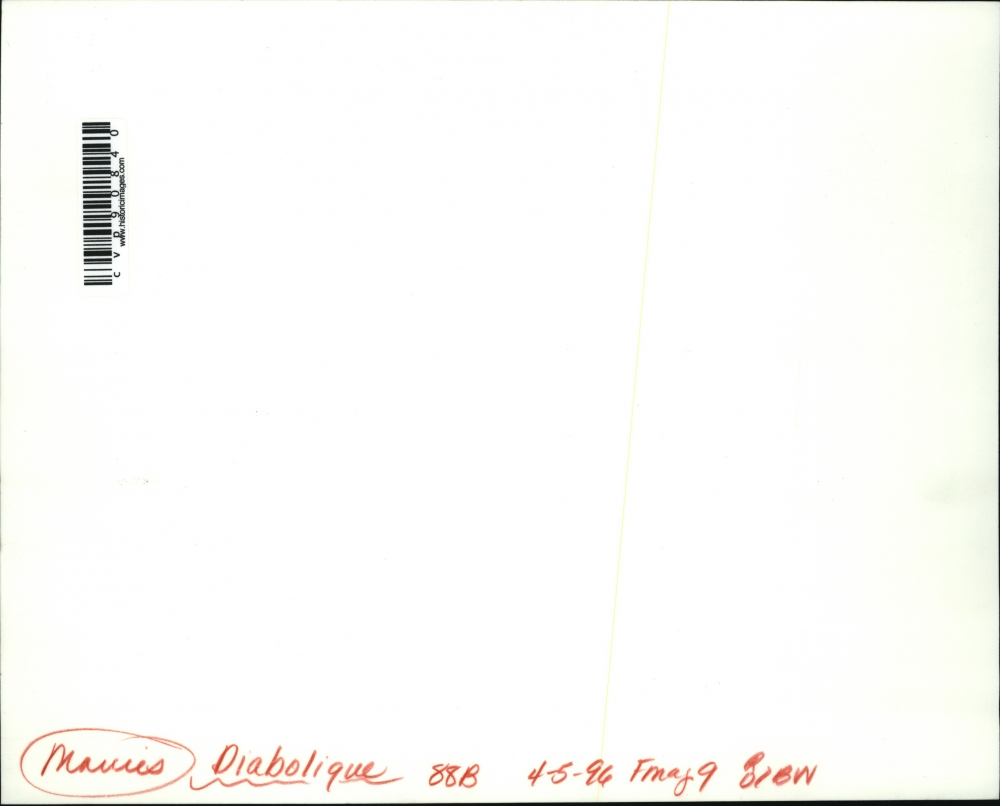 cvp90840
www.historicimages.com
Movies Diabolique 88B 4-5-96 Fmag 9